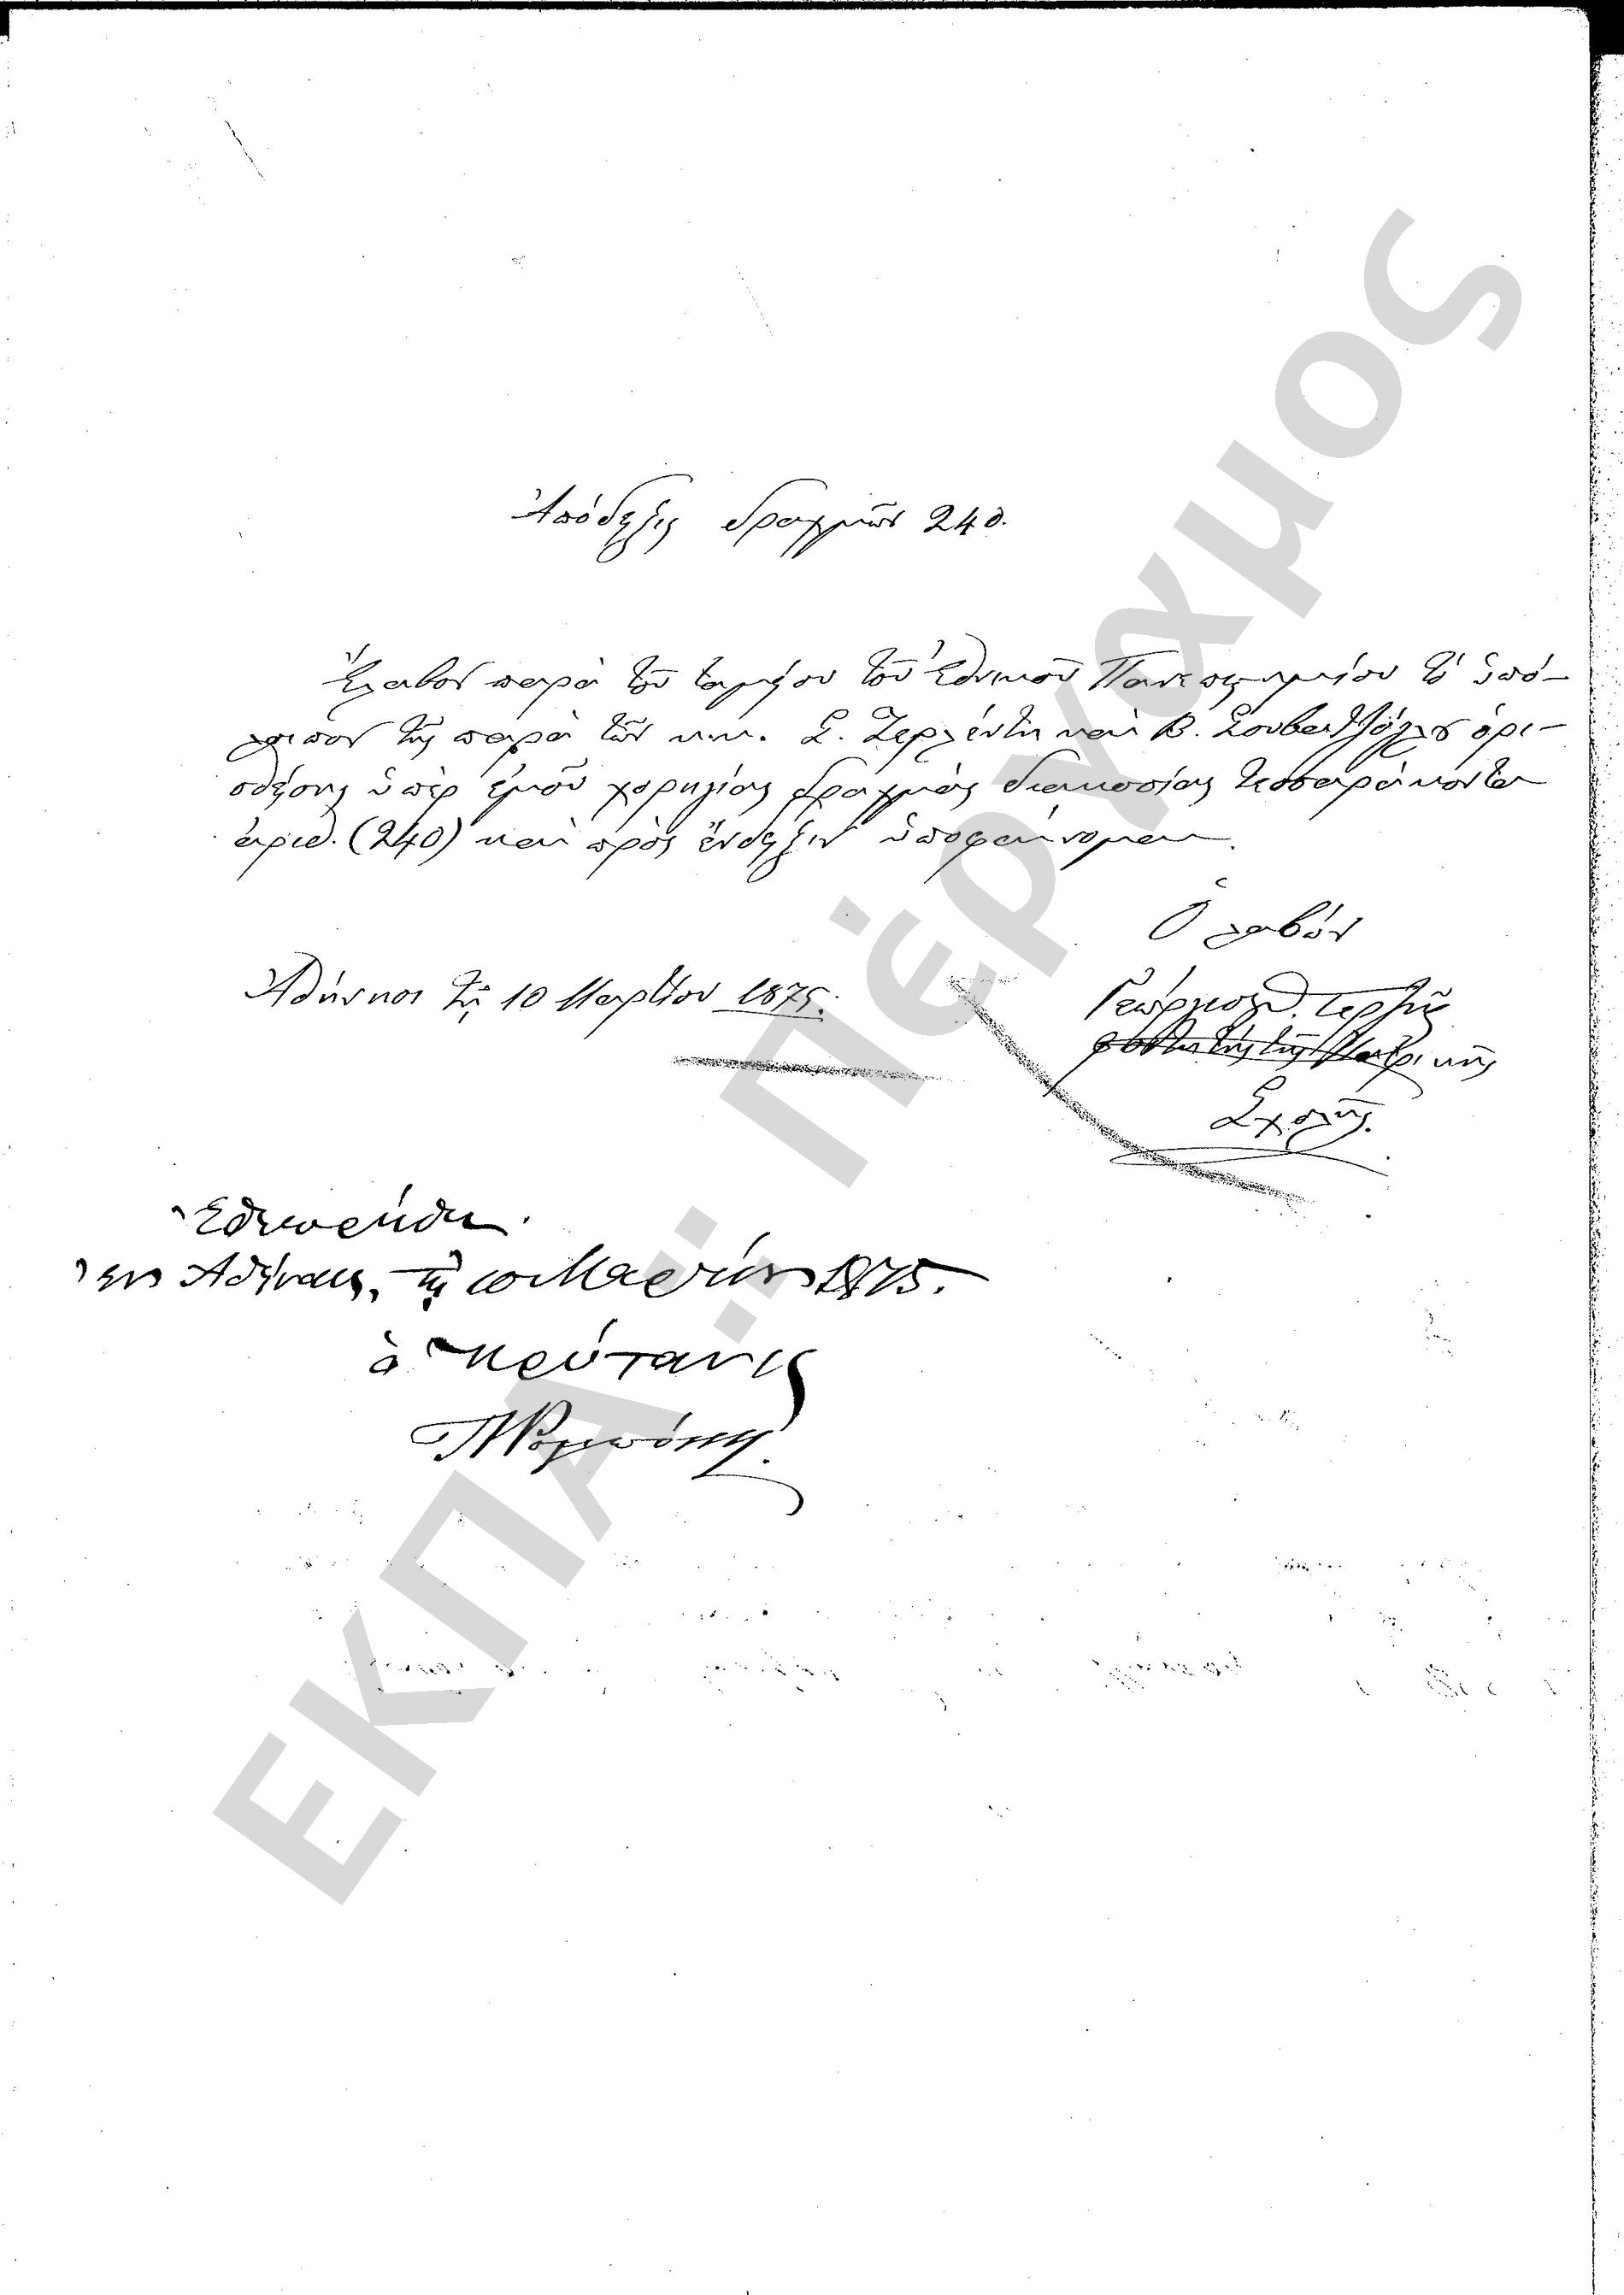 Ἀπόδειξις δραχμῶν 240.
Ἔλαβον παρὰ τοῦ ταμείου τοῦ Ἐθνικοῦ Πανεπιστημίου τὸ ὑπό-
λοιπον τῆς παρὰ τῶν κ.κ. Σ. Σεργέντη καὶ Β. Σουβατζόγλου ὁρι-
σθείσης ὑπὲρ ἐμοῦ χορηγίας δραχμὰς διακοσίας τεσσαράκοντα
ἀριθ. (240) καὶ πρὸς ἔνδειξιν ὑποφαίνομαι.
Ὁ λαβών
Ἀθήνησι τῇ 10 Μαρτίου 1875.
Γεώργιος
φοιτητὴς τῆς Ἰατρικῆς
Σχολῆς.
Ἐθεωρήθη.
ἐν Ἀθήναις, τῇ 10 Μαρτίου 1875.
ὁ Πρύτανις
ΕΚΠΑ.: Πέργαμος